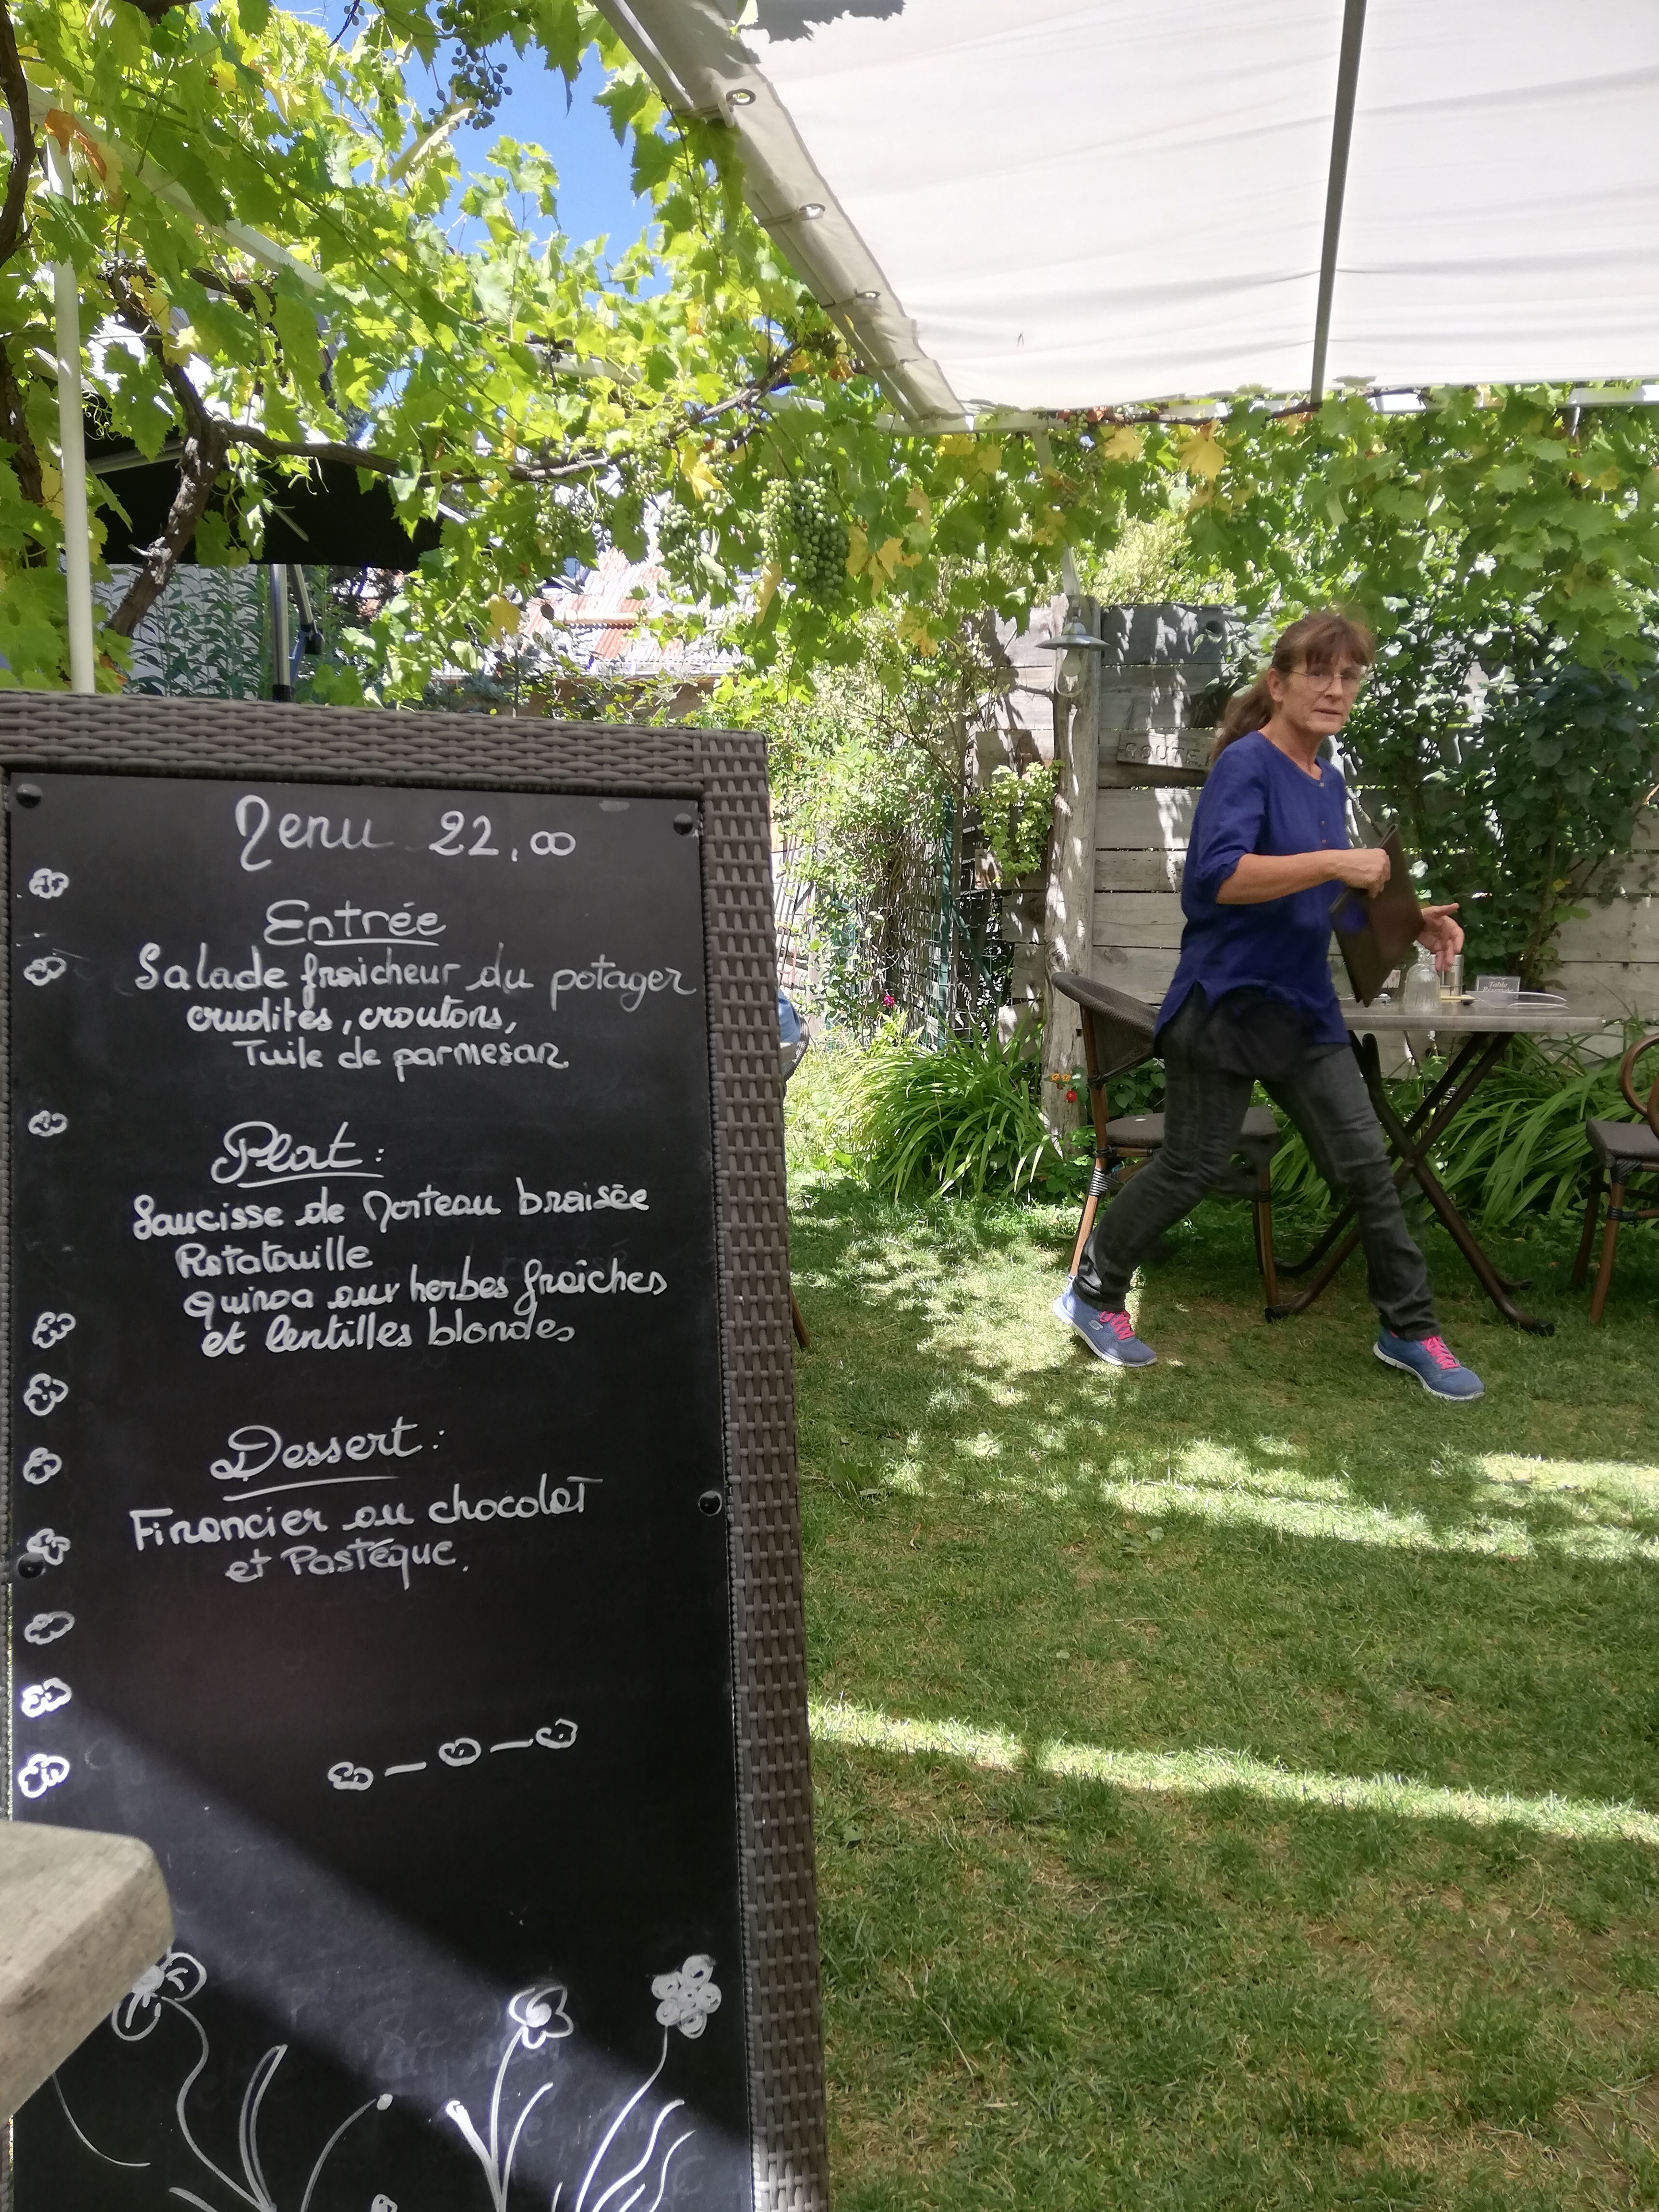 Menu 22,00
Entrée
Salade fraicheur du potager
crudités, croutons,
Tuile de parmesan
Plat :
Saucisse de Morteau braisée
Ratatouille
Quinoa aux herbes fraiches
et lentilles blondes
Dessert :
Financier au chocolat
et Pastéque.
Table